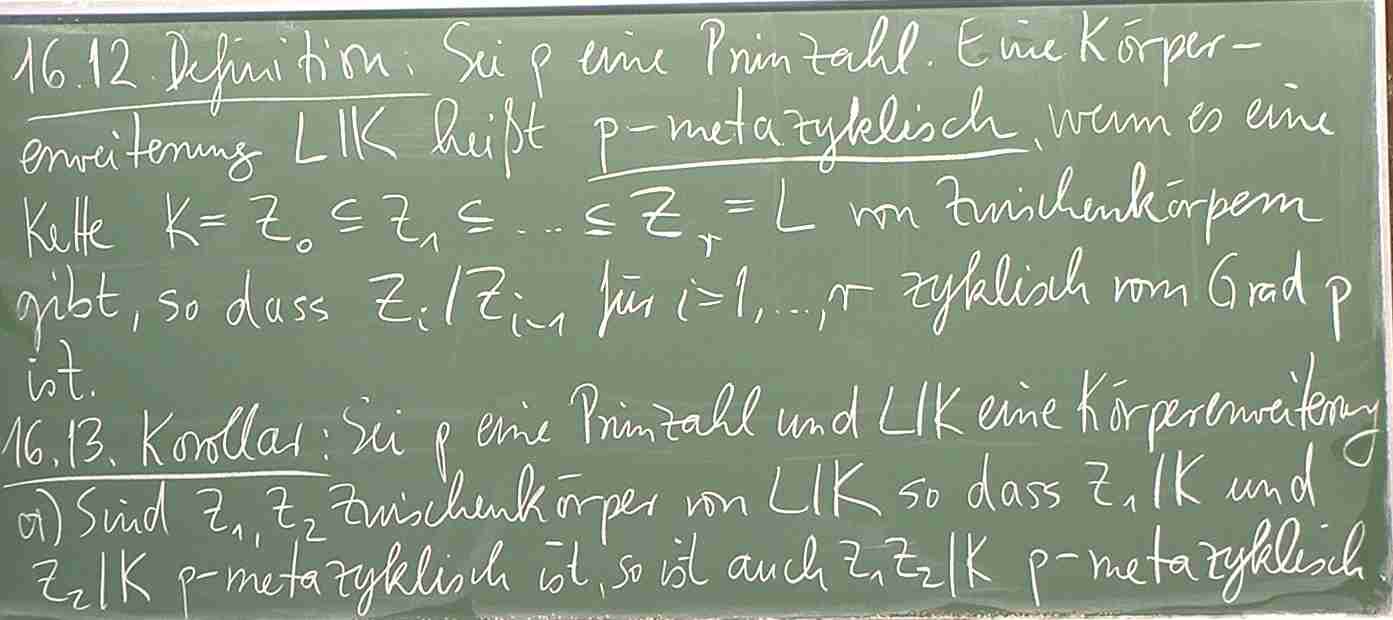 16.12. Definition: Sei p eine Primzahl. Eine Körper-
erweiterung L|K heißt p-metazyklisch, wenn es eine
Kette K = Z₀ ⊆ Z₁ ⊆ ... ⊆ Zᵣ = L von Zwischenkörpern
gibt, so dass Zᵢ/Zᵢ₋₁ für i=1,...,r zyklisch vom Grad p
ist.
16.13. Korollar: Sei p eine Primzahl und L|K eine Körpererweiterung
a) Sind Z₁, Z₂ Zwischenkörper von L|K so dass Z₁|K und
Z₂|K p-metazyklisch ist, so ist auch Z₁Z₂|K p-metazyklisch.